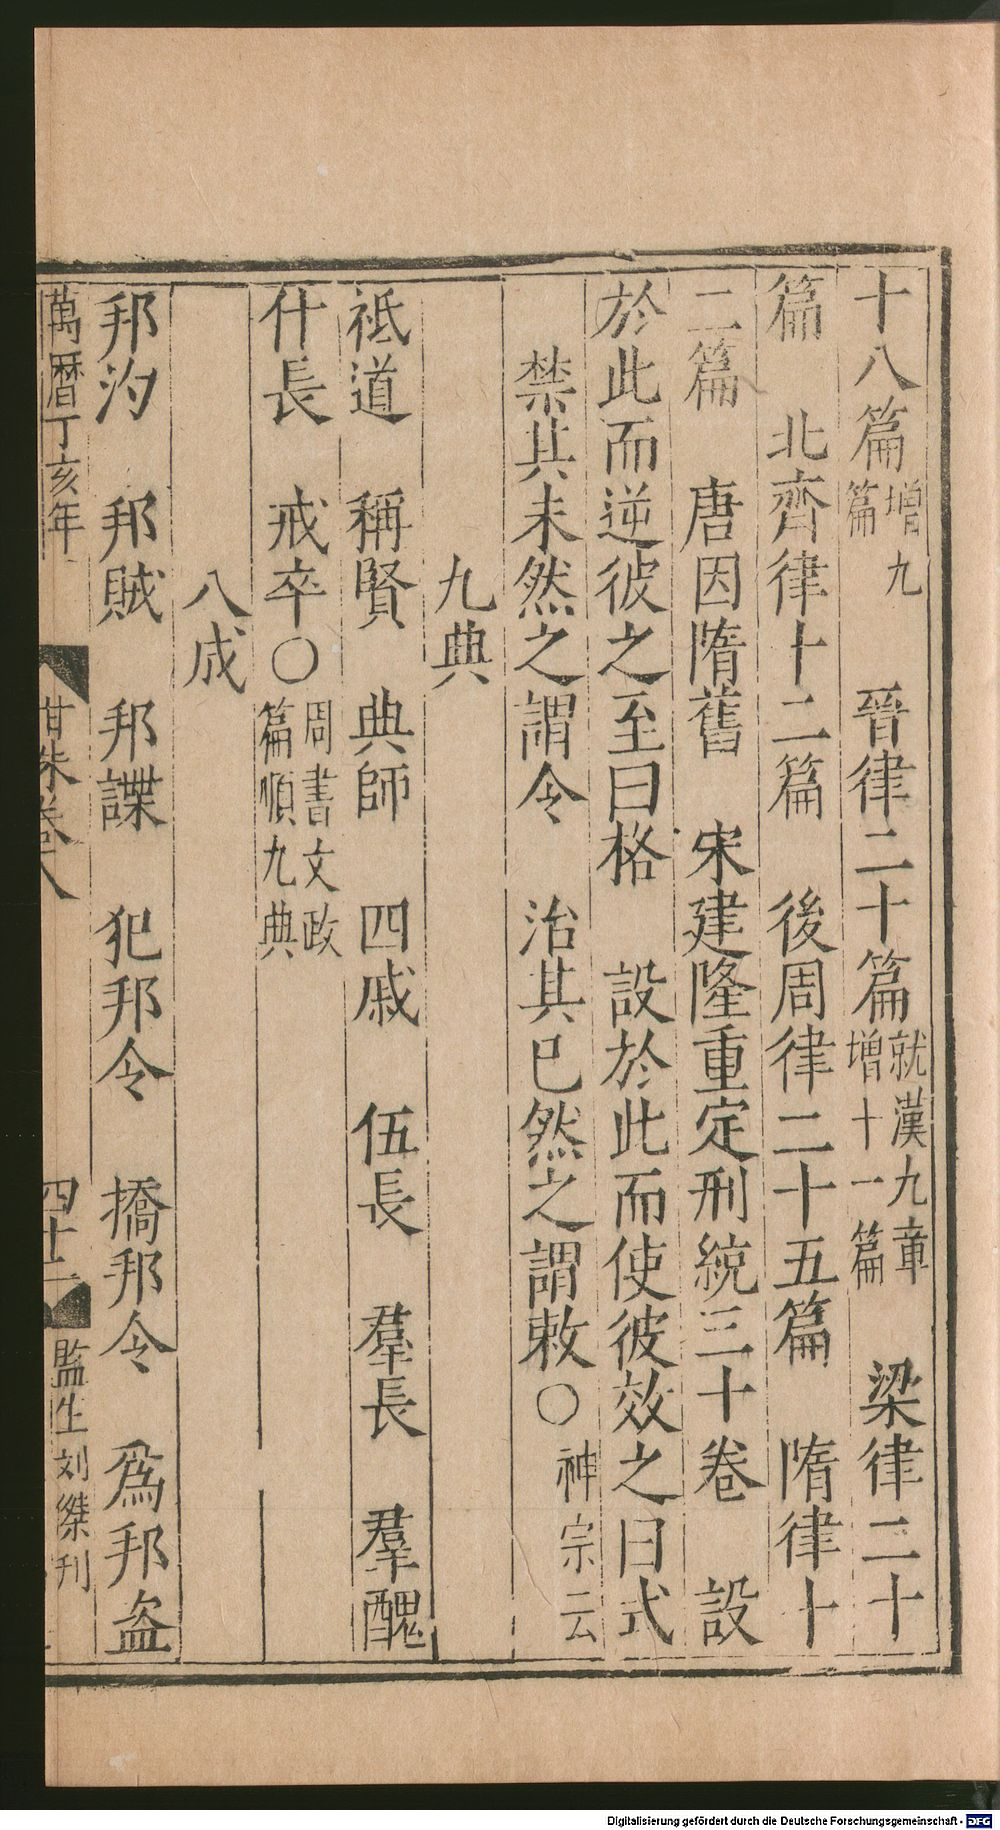 十八篇增九篇　晉律二十篇就漢九章增十一篇　梁律二十
篇　北齊律十二篇　後周律二十五篇　隋律十
二篇　唐因隋舊　宋建隆重定刑統三十卷　設
於此而逆彼之至曰格　設於此而使彼效之曰式
禁其未然之謂令　治其已然之謂敕〇神宗云
九典
祗道　稱賢　典師　四戚　伍長　羣長　羣醜
什長　戒卒〇周書文政篇順九典
八成
邦汋　邦賊　邦諜　犯邦令　撟邦令　爲邦盗
萬曆丁亥年　卷八　四十二　監生刘傑刊
Digitalisierung gefördert durch die Deutsche Forschungsgemeinschaft - DFG